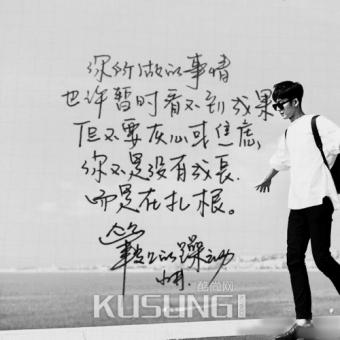 你所做的事情
也许暂时看不到成果
但不要灰心或焦虑
你不是没有成長.
而是在扎根。
笔尖上的躁动
酷尚网
KUSUNG